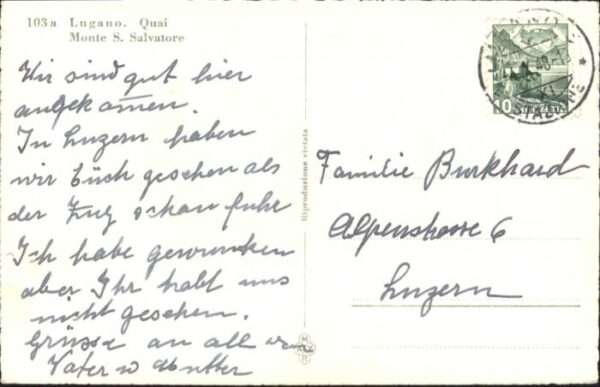 103a Lugano. Quai
Monte S. Salvatore
Wir sind gut hier
angekommen.
In Luzern haben
wir Euch gesehen als
der Zug schon fuhr
Ich habe gewunken
aber Ihr habt uns
nicht gesehen.
Grüsse an all von
Vater u Mutter
Riproduzione vietata
Familie Burkhard
Alpenstrasse 6
Luzern
10